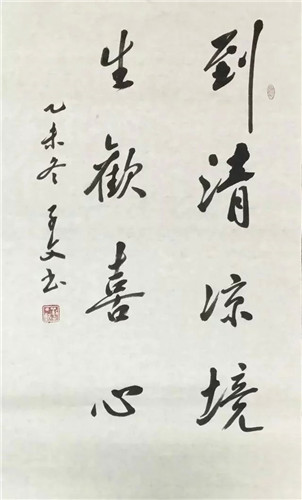 到清凉境
生歡喜心
乙未冬 子文书